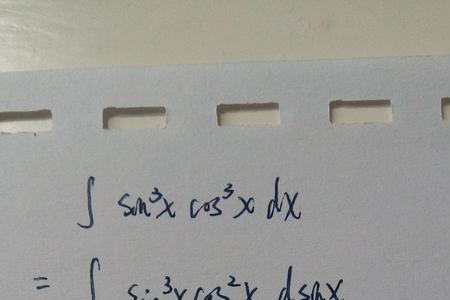 ∫ sin³x cos³x dx
= ∫ sin³x cos²x dsinx